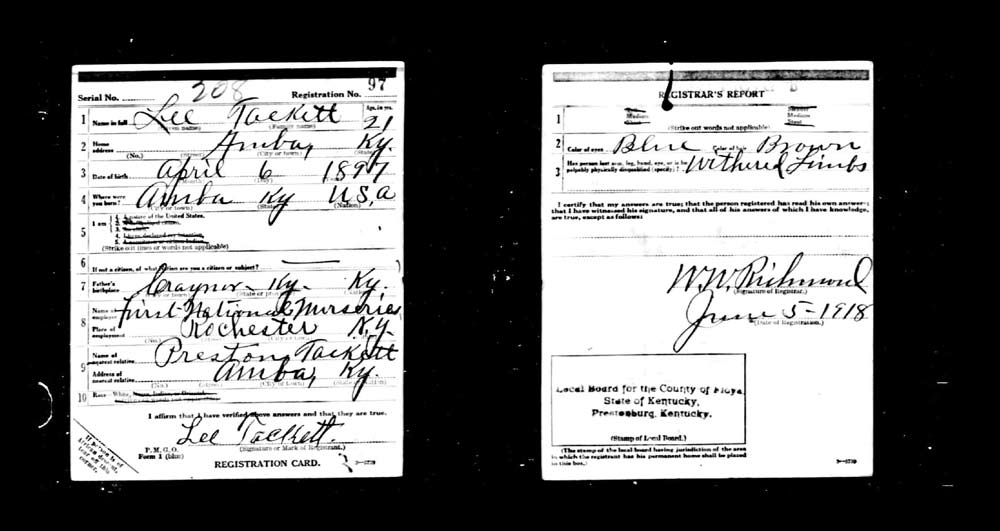 208 97
Serial No. Registration No.
1 Name in full Lee Tackett Age, in yrs. 21
(Given name) (Family name)
2 Home address Amba, Ky.
(No.) (Street) (City or town) (State)
3 Date of birth April 6 1897
(Month) (Day)
4 Where were you born? Amba Ky U.S.A
(City or town) (State) (Nation)
5 I am
1. A native of the United States.
(Strike out lines or words not applicable)
6 If not a citizen, of what nation are you a citizen or subject?
7 Father's birthplace Craynor Ky. Ky.
8 Name of employer First National Nurseries
Place of employment Rochester N.Y.
9 Name of nearest relative Preston Tackett
Address of nearest relative Amba, Ky.
(No.) (Street) (City or town)
10 Race—White,
I affirm that I have verified above answers and that they are true.
Lee Tackett.
P.M.G.O.
Form 1 (blue)
(Signature or Mark of Registrant.)
REGISTRATION CARD.
If person is of African descent, tear off this corner.
REGISTRAR'S REPORT
1 Medium Slender Medium Stout
(Strike out words not applicable)
2 Color of eyes Blue Color of hair Brown
3 Has person lost arm, leg, hand, eye, or is he palpably physically disqualified (specify)? Withered Limbs
I certify that my answers are true; that the person registered has read his own answers;
that I have witnessed his signature, and that all of his answers of which I have knowledge,
are true, except as follows:
W.W. Richmond
(Signature of Registrar.)
June 5-1918
(Date of Registration.)
Local Board for the County of Floyd,
State of Kentucky,
Prestonburg, Kentucky.
(Stamp of Local Board.)
(The stamp of the local board having jurisdiction of the area
in which the registrant has his permanent home shall be placed
in this box.)